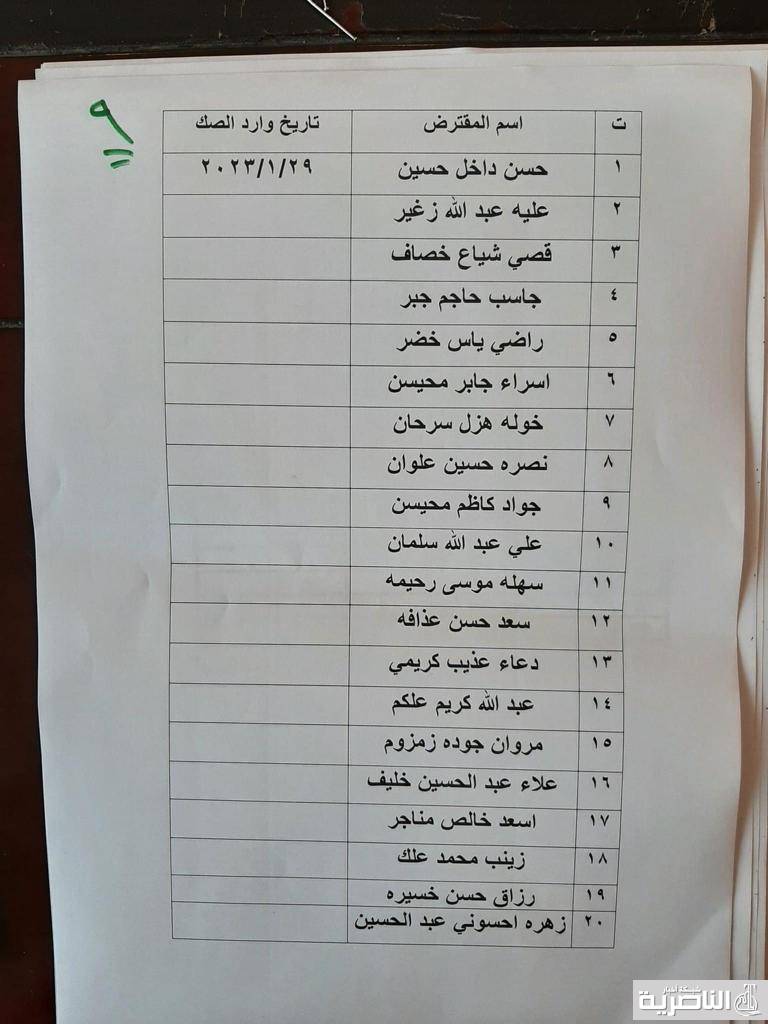 ٩
ت اسم المقترض تاريخ وارد الصك
١ حسن داخل حسين ٢٠٢٣/١/٢٩
٢ عليه عبد الله زغير
٣ قصي شياع خصاف
٤ جاسب حاجم جبر
٥ راضي ياس خضر
٦ اسراء جابر محيسن
٧ خوله هزل سرحان
٨ نصره حسين علوان
٩ جواد كاظم محيسن
١٠ علي عبد الله سلمان
١١ سهله موسى رحيمه
١٢ سعد حسن عذافه
١٣ دعاء عذيب كريمي
١٤ عبد الله كريم علكم
١٥ مروان جوده زمزوم
١٦ علاء عبد الحسين خليف
١٧ اسعد خالص مناجر
١٨ زينب محمد علك
١٩ رزاق حسن خسيره
٢٠ زهره احسوني عبد الحسين
شبكة أخبار
الناصرية